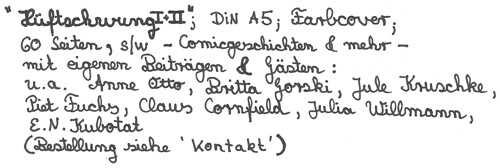 "Hüftschwung I+II"; DIN A5; Farbcover;
60 Seiten, s/w - Comicgeschichten & mehr -
mit eigenen Beiträgen & Gästen:
u.a. Anne Otto, Britta Gorski, Jule Kruschke,
Piet Fuchs, Claus Cornfield, Julia Willmann,
E.N. Kubotat
(Bestellung siehe 'Kontakt')